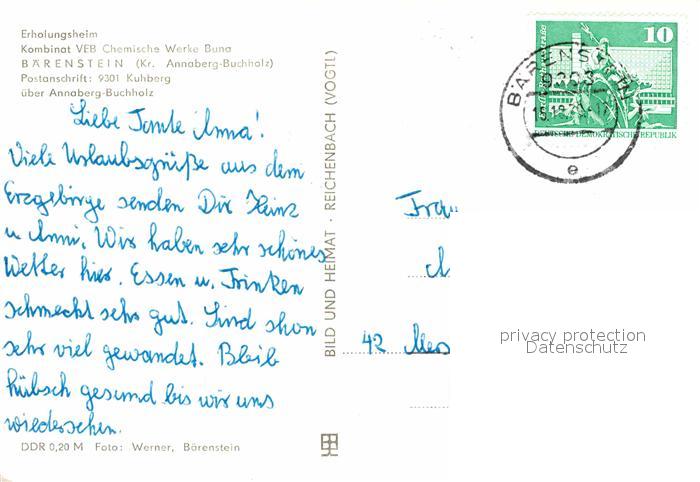 Erholungsheim
Kombinat VEB Chemische Werke Buna
BÄRENSTEIN (Kr. Annaberg-Buchholz)
Postanschrift: 9301 Kuhberg
über Annaberg-Buchholz
Liebe Tante Anna!
Viele Urlaubsgrüße aus dem
Erzgebirge senden Dir Heinz
u. Anni. Wir haben sehr schönes
Wetter hier. Essen u. Trinken
schmeckt sehr gut. Sind shon
sehr viel gewandet. Bleib
hübsch gesund bis wir uns
wiedersehen.
DDR 0,20 M Foto: Werner, Bärenstein
BILD UND HEIMAT · REICHENBACH (VOGTL)
10
DEUTSCHE DEMOKRATISCHE REPUBLIK
BÄRENSTEIN
9303
e
Frau
A
42 Mers
privacy protection
Datenschutz